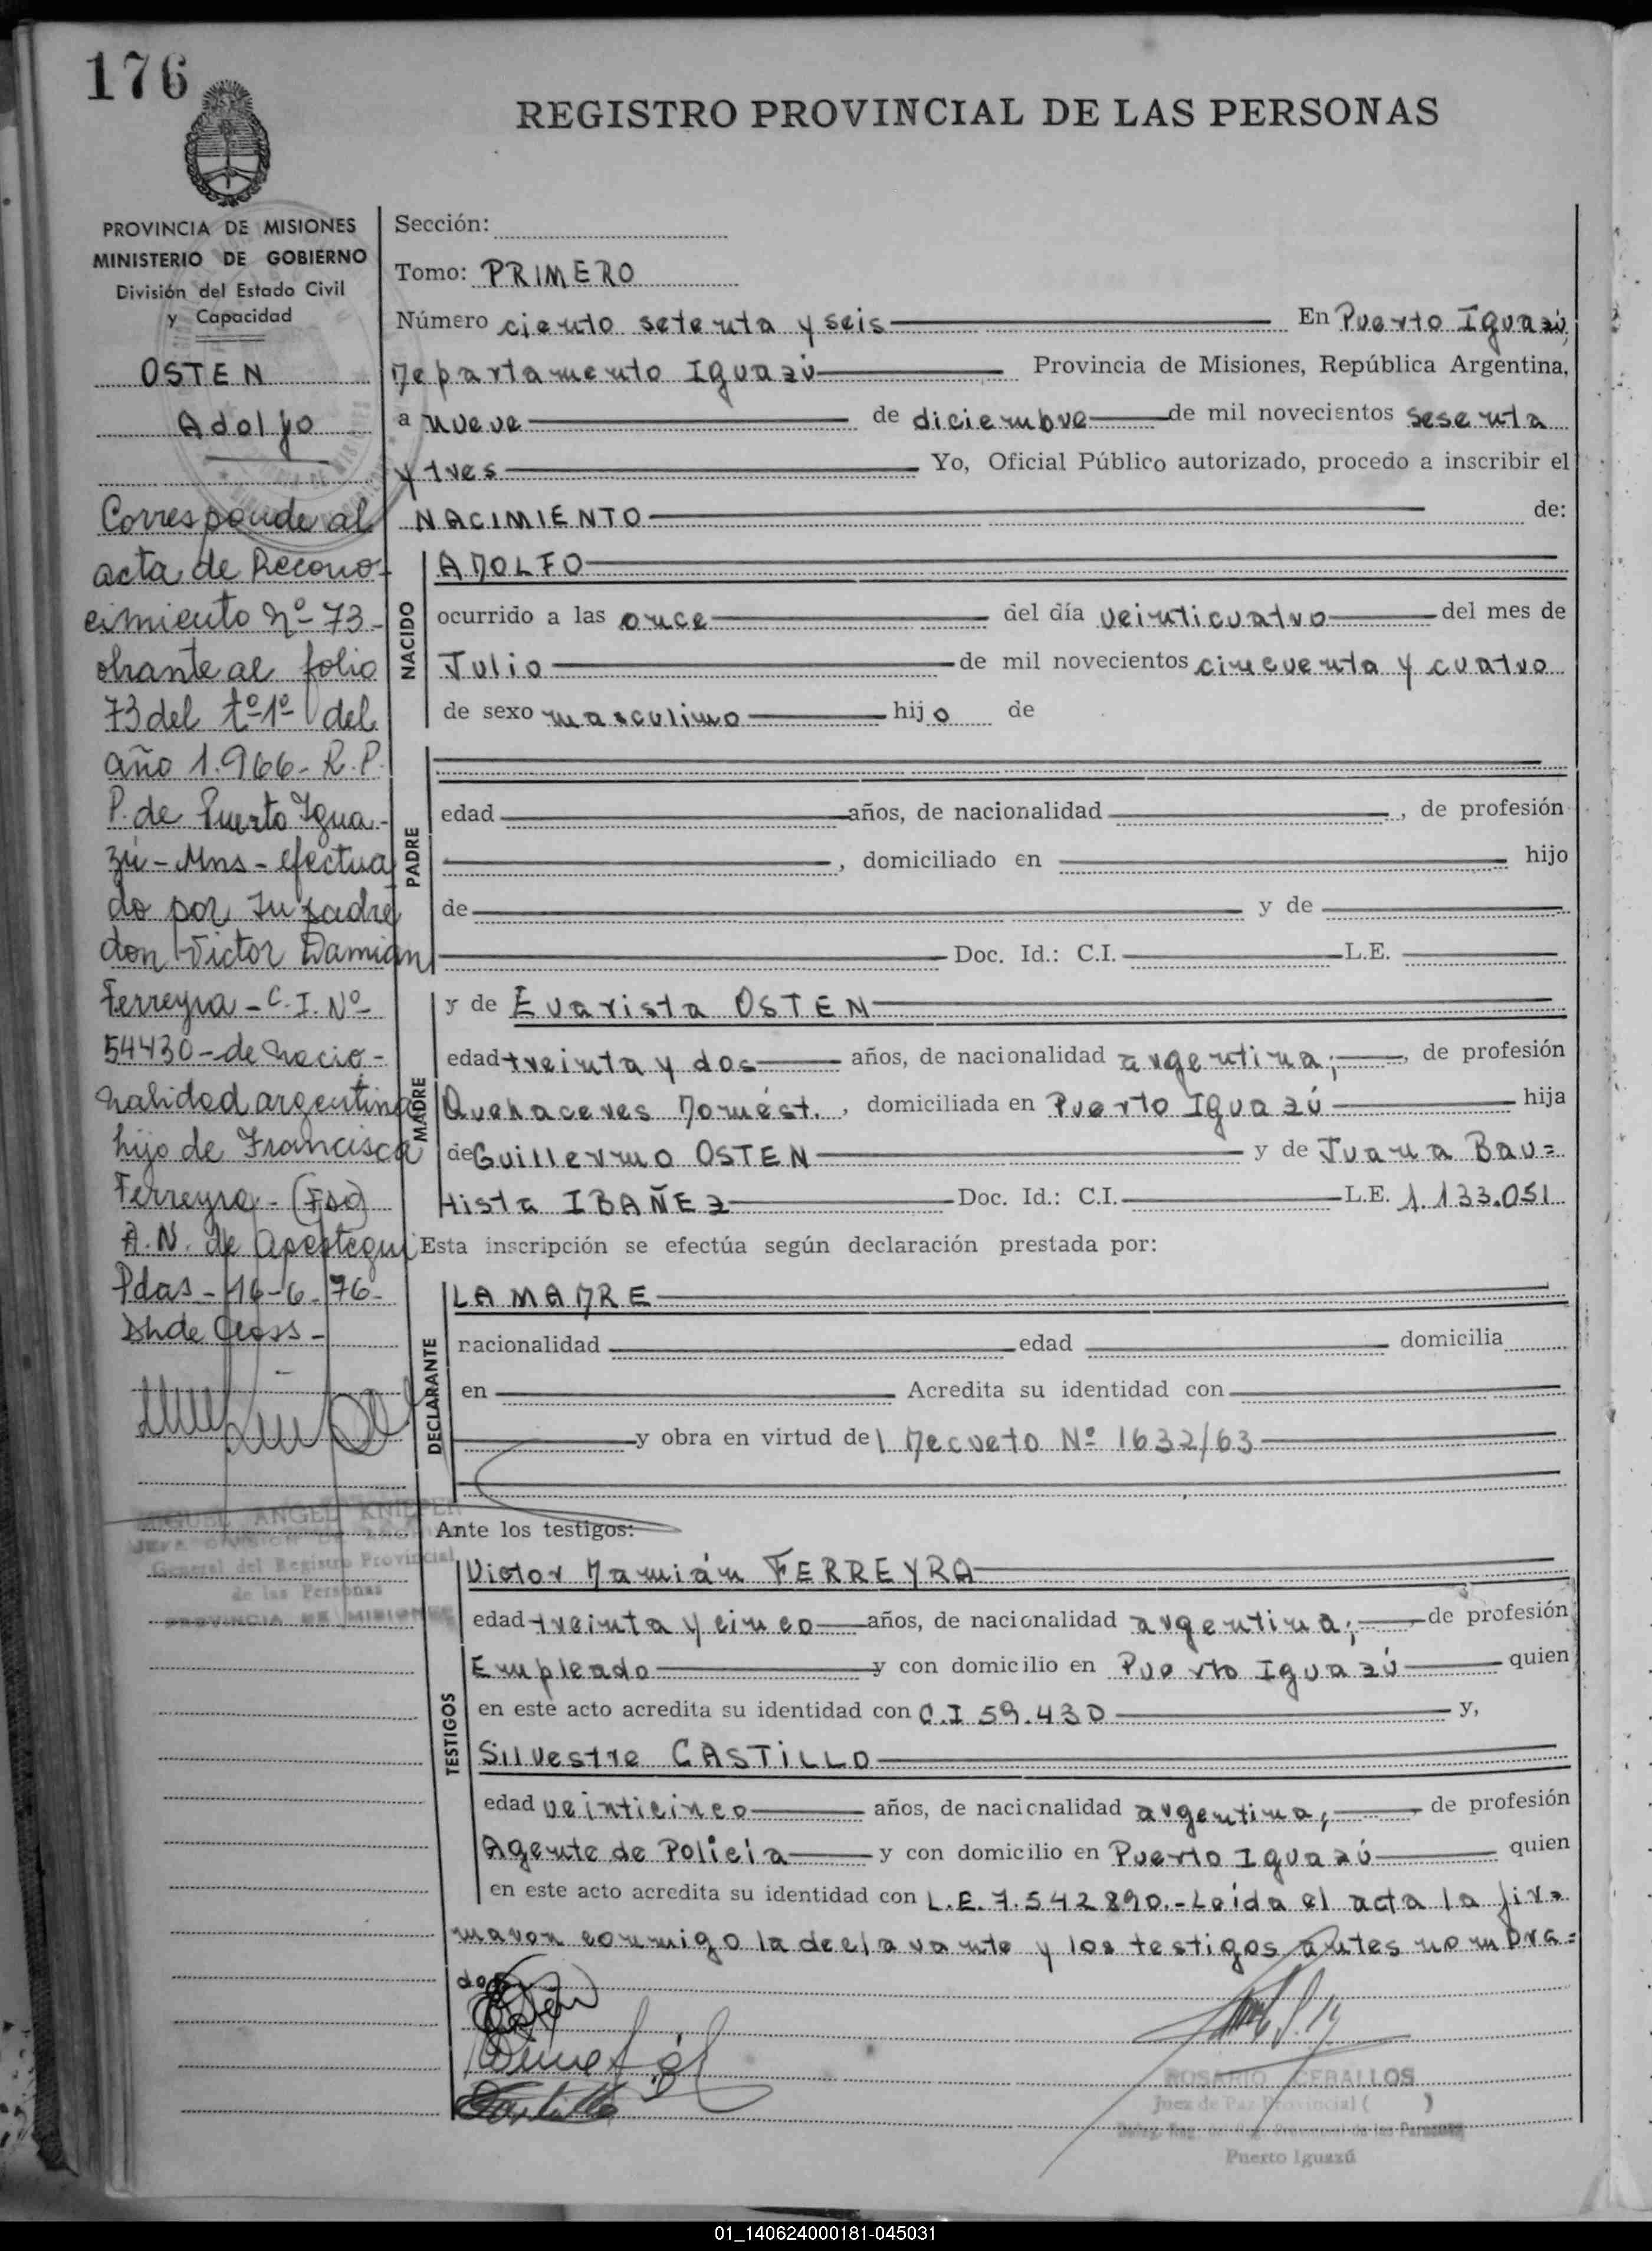 176
REGISTRO PROVINCIAL DE LAS PERSONAS
PROVINCIA DE MISIONES
MINISTERIO DE GOBIERNO
División del Estado Civil
y Capacidad
OSTEN
Adolfo
Corresponde al
acta de Recono-
cimiento Nº 73-
obrante al folio
73 del tº 1º del
año 1.966- R.P.
P. de Puerto Igua-
zú - Mns - efectua
do por su padre
don Victor Damian
Ferreyra - C.I. Nº
54430 - de nacio-
nalidad argentina
hijo de Francisca
Ferreyra - (Fdo)
A.N. de Apestegui
Pdas - 16-6-76-
MIGUEL ANGEL KNIPPER
JEFE DIVISION
General del Registro Provincial
de las Personas
PROVINCIA DE MISIONES
Sección:
Tomo: PRIMERO
Número ciento setenta y seis En Puerto Iguazú,
Departamento Iguazú Provincia de Misiones, República Argentina,
a nueve de diciembre de mil novecientos sesenta
y tres Yo, Oficial Público autorizado, procedo a inscribir el
NACIMIENTO de:
NACIDO
ADOLFO
ocurrido a las once del día veinticuatro del mes de
Julio de mil novecientos cincuenta y cuatro
de sexo masculino hijo de
PADRE
edad años, de nacionalidad , de profesión
, domiciliado en hijo
de y de
Doc. Id.: C.I. L.E.
MADRE
y de Evarista OSTEN
edad treinta y dos años, de nacionalidad argentina; , de profesión
Quehaceres Domést. , domiciliada en Puerto Iguazú hija
de Guillermo OSTEN y de Juana Bau=
tista IBAÑEZ Doc. Id.: C.I. L.E. 1.133.051
Esta inscripción se efectúa según declaración prestada por:
DECLARANTE
LA MADRE
nacionalidad edad domicilia
en Acredita su identidad con
y obra en virtud del Decreto Nº 1632/63
Ante los testigos:
TESTIGOS
Victor Damián FERREYRA
edad treinta y cinco años, de nacionalidad argentina; , de profesión
Empleado y con domicilio en Puerto Iguazú quien
en este acto acredita su identidad con C.I 59.430 y,
Silvestre CASTILLO
edad veinticinco años, de nacionalidad argentina; , de profesión
Agente de Policía y con domicilio en Puerto Iguazú quien
en este acto acredita su identidad con L.E. 7.542.890.- Leída el acta la fir=
maron conmigo la declarante y los testigos antes nombra=
dos
ROSARIO CEBALLOS
Juez de Paz Provincial ( )
Puerto Iguazú
01_140624000181-045031